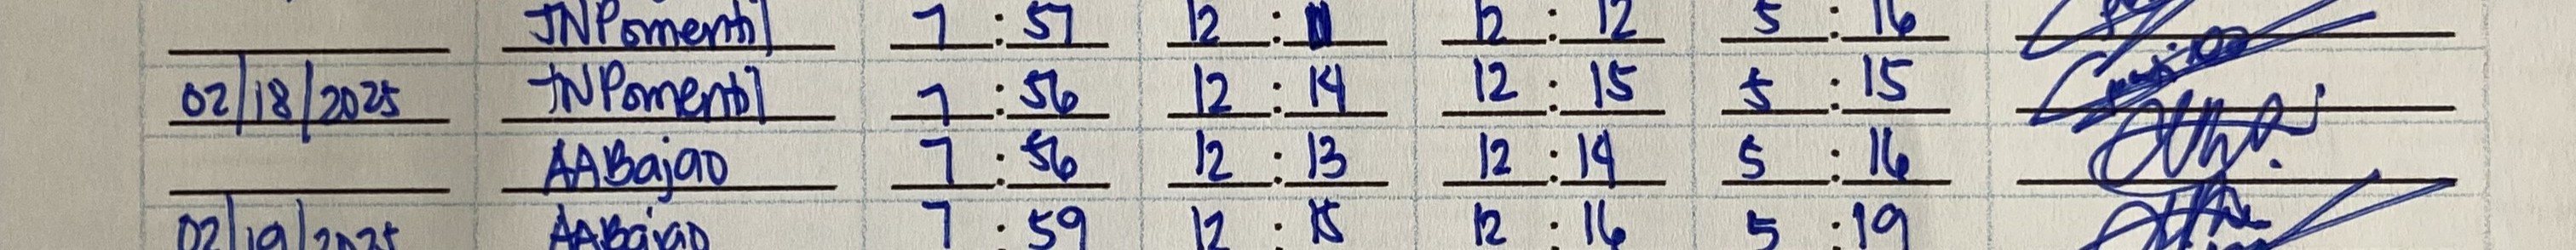 JNPomentil 7 : 57 12 : 11 12 : 12 5 : 16
02/18/2025 JNPomentil 7 : 56 12 : 14 12 : 15 5 : 15
AABajao 7 : 56 12 : 13 12 : 14 5 : 16
02/19/2025 AABajao 7 : 59 12 : 15 12 : 16 5 : 19